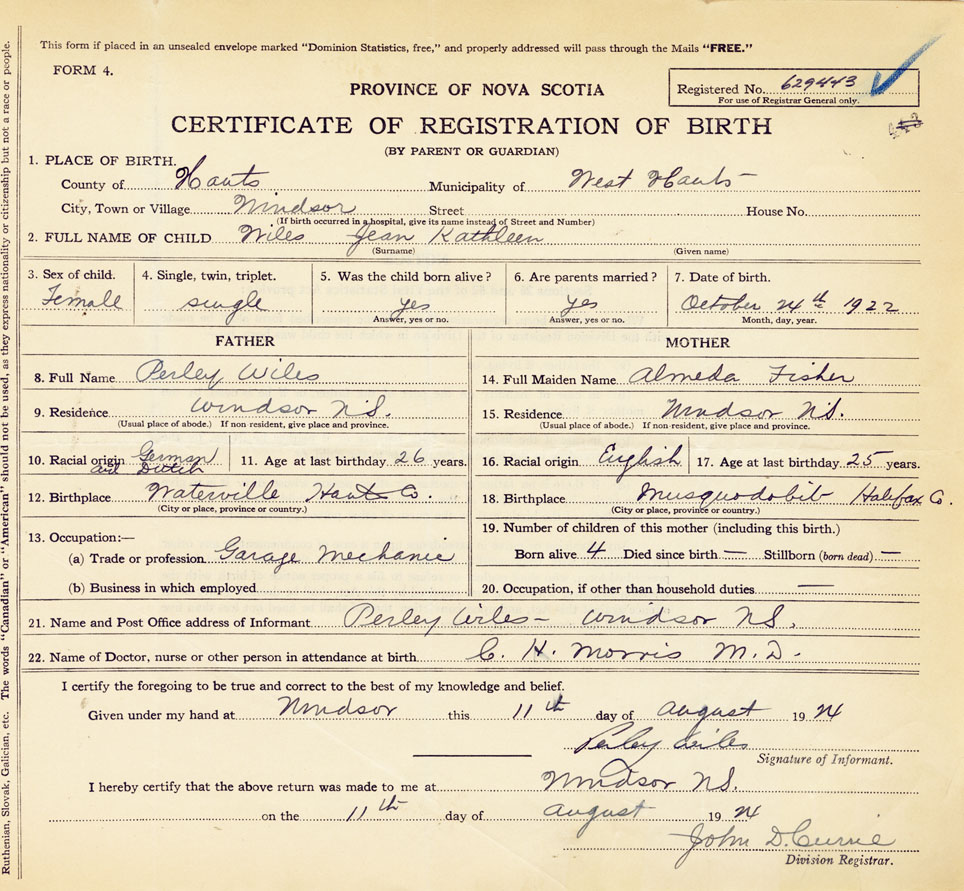 This form if placed in an unsealed envelope marked "Dominion Statistics, free," and properly addressed will pass through the Mails "FREE."
FORM 4.
PROVINCE OF NOVA SCOTIA
Registered No. 629443
For use of Registrar General only.
CERTIFICATE OF REGISTRATION OF BIRTH
(BY PARENT OR GUARDIAN)
1. PLACE OF BIRTH.
County of Hants Municipality of West Hants
City, Town or Village Windsor Street House No.
(If birth occurred in a hospital, give its name instead of Street and Number)
2. FULL NAME OF CHILD Wiles Jean Kathleen
(Surname) (Given name)
3. Sex of child. 4. Single, twin, triplet. 5. Was the child born alive? 6. Are parents married? 7. Date of birth.
Female single yes yes October 24th 1922
Answer, yes or no. Answer, yes or no. Month, day, year.
FATHER MOTHER
8. Full Name Perley Wiles 14. Full Maiden Name Almeda Fisher
9. Residence Windsor N.S. 15. Residence Windsor N.S.
(Usual place of abode.) If non-resident, give place and province. (Usual place of abode.) If non-resident, give place and province.
10. Racial origin German and Dutch 11. Age at last birthday 26 years. 16. Racial origin English 17. Age at last birthday 25 years.
12. Birthplace Waterville Hants Co. 18. Birthplace Musquodobit Halifax Co.
(City or place, province or country.) (City or place, province or country.)
13. Occupation:— 19. Number of children of this mother (including this birth.)
(a) Trade or profession Garage Mechanic Born alive 4 Died since birth — Stillborn (born dead) —
(b) Business in which employed 20. Occupation, if other than household duties —
21. Name and Post Office address of Informant Perley Wiles - Windsor N.S.
22. Name of Doctor, nurse or other person in attendance at birth C. H. Morris M.D.
I certify the foregoing to be true and correct to the best of my knowledge and belief.
Given under my hand at Windsor this 11th day of August 1924
Perley Wiles
Signature of Informant.
I hereby certify that the above return was made to me at Windsor N.S.
on the 11th day of August 1924
John D. Currie
Division Registrar.
Ruthenian, Slovak, Galician, etc. The words "Canadian" or "American" should not be used, as they express nationality or citizenship but not a race or people.